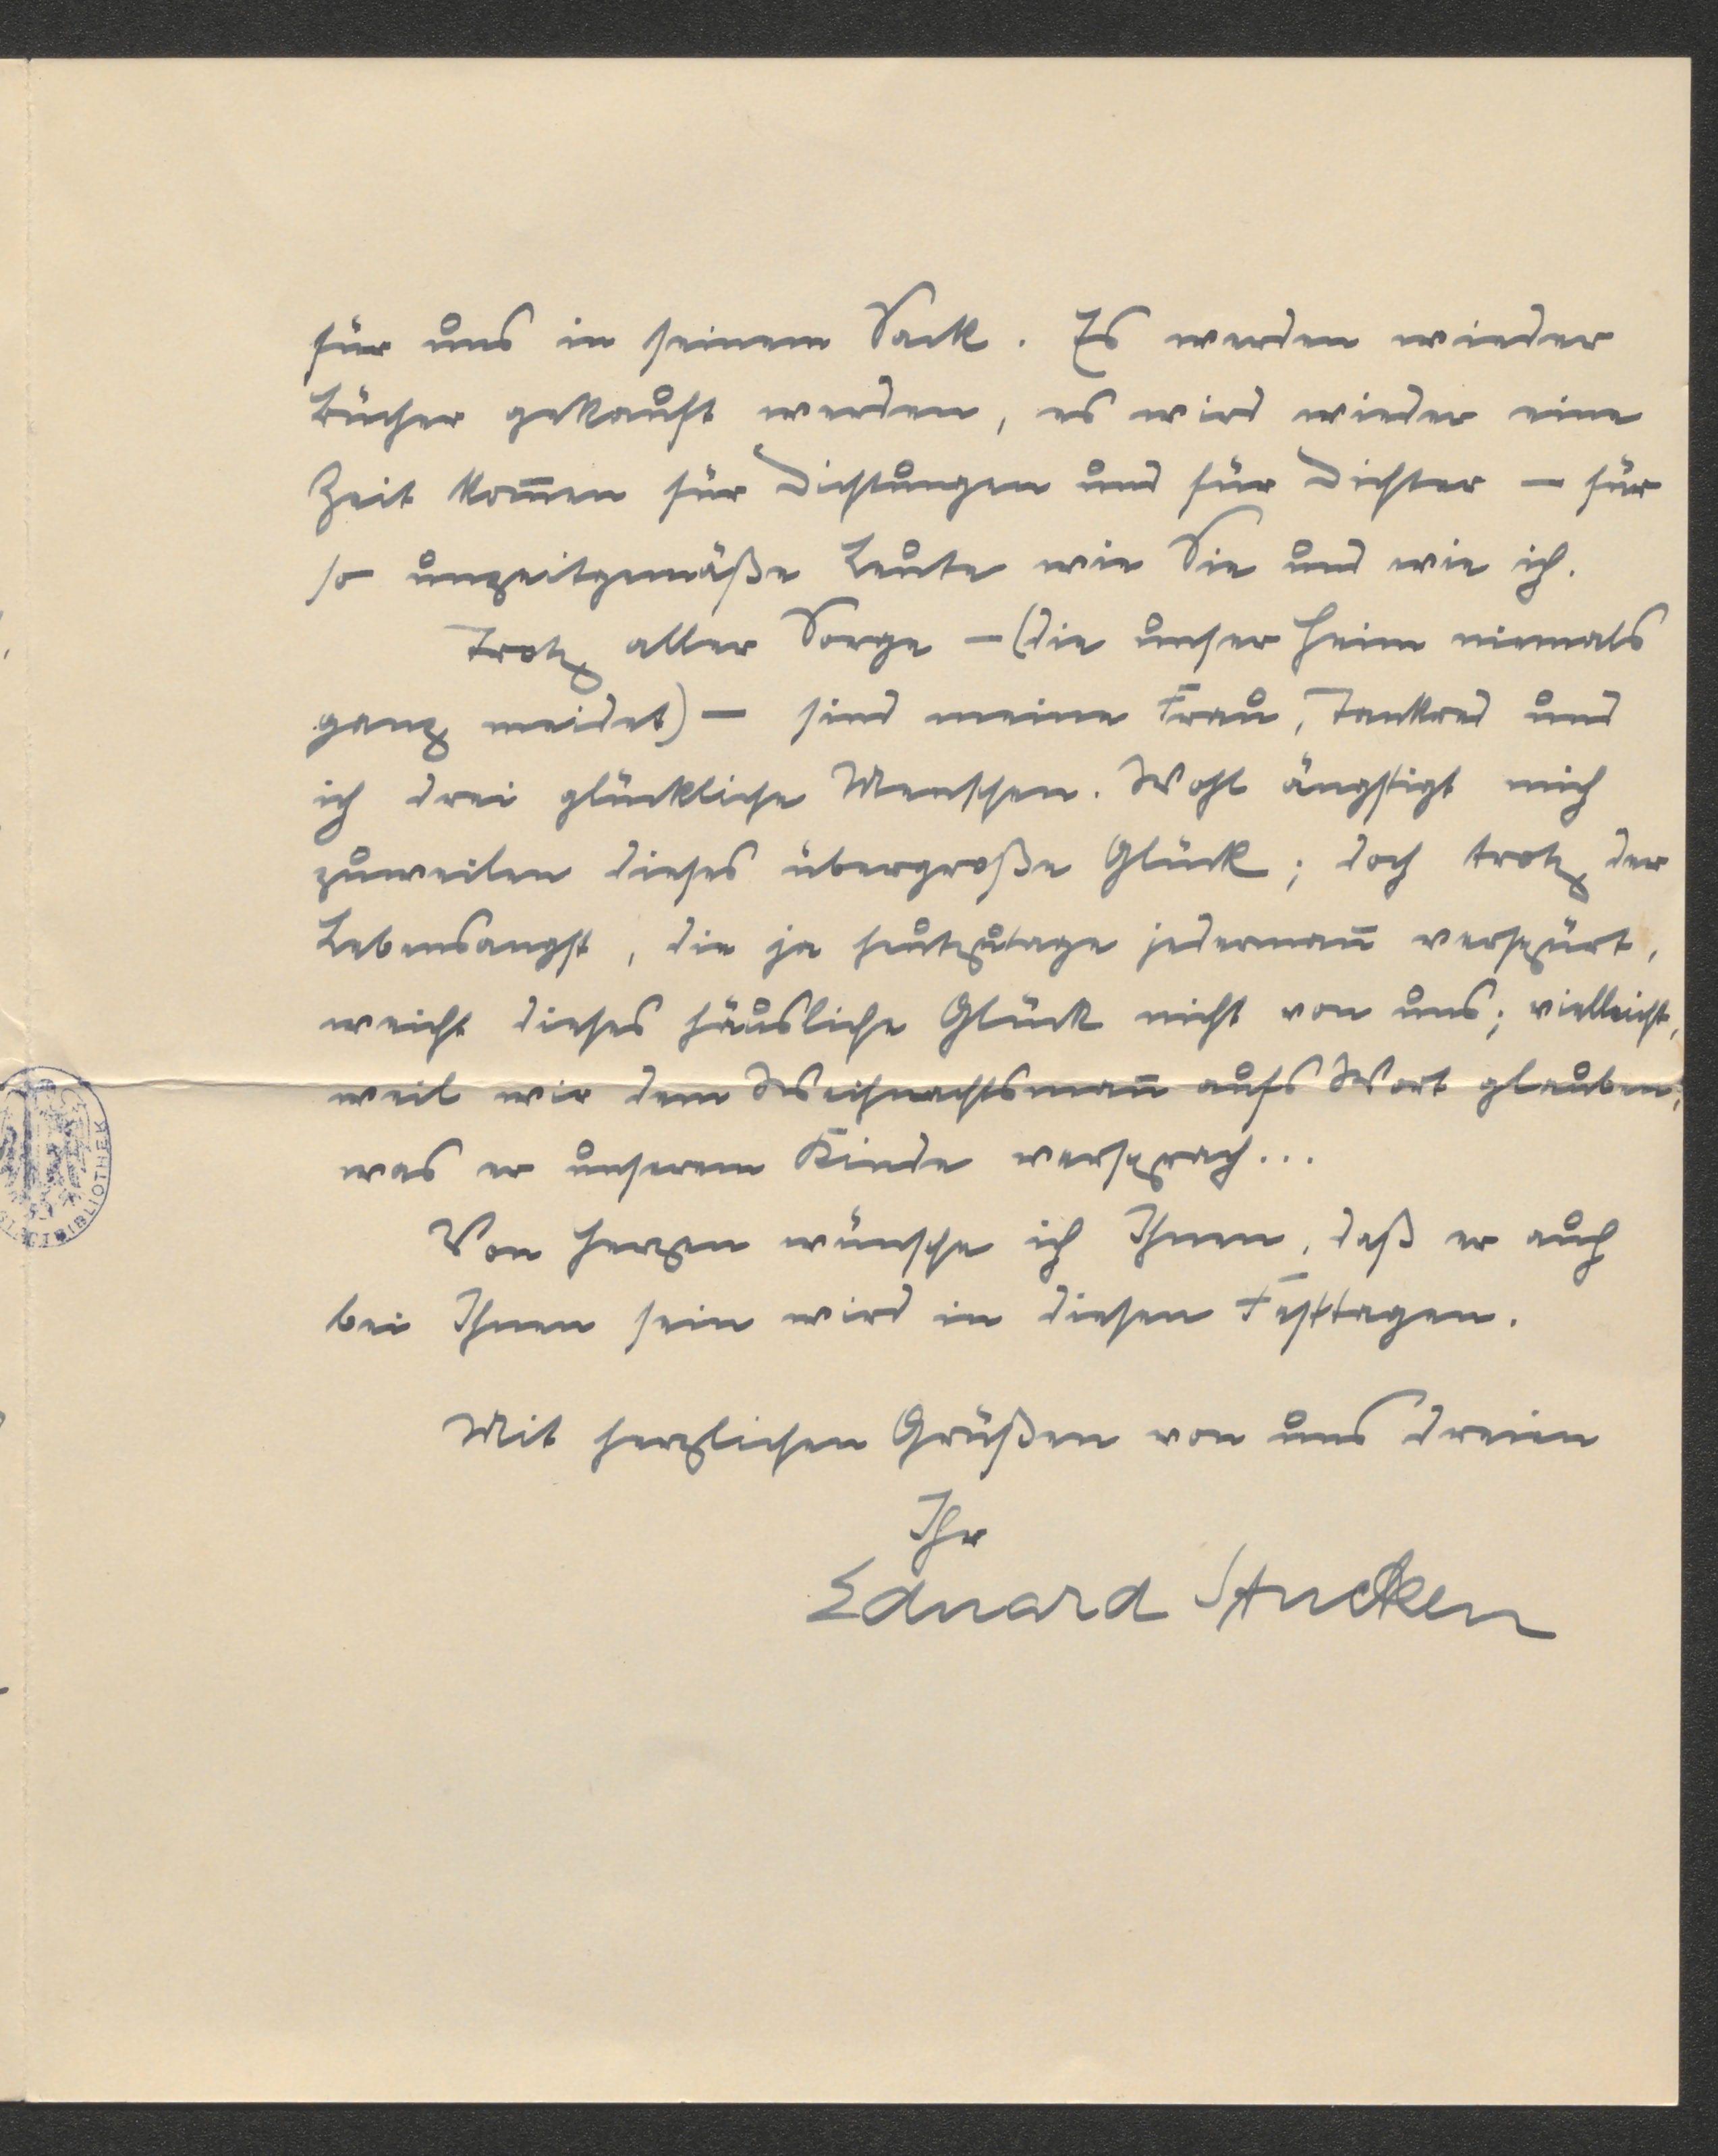 für uns in seinem Sack. Es werden wieder
Bücher gekauft werden, es wird wieder eine
Zeit kom̄en für Dichtungen und für Dichter — für
so unzeitgemäße Leute wie Sie und wie ich.
Trotz aller Sorge — (die unser Heim niemals
ganz meidet) — sind meine Frau, Tankred und
ich drei glückliche Menschen. Wohl ängstigt mich
zuweilen dieses übergroße Glück; doch trotz der
Lebensangst, die ja heutzutage jederman̄ verspürt,
weicht dieses häusliche Glück nicht von uns; vielleicht,
weil wir dem Weihnachtsman̄ aufs Wort glauben,
was er unserem Kinde versprach...
Von Herzen wünsche ich Ihnen, daß er auch
bei Ihnen sein wird in diesen Festtagen.
Mit herzlichen Grüßen von uns dreien
Ihr
Eduard Stucken
BIBLIOTHEK